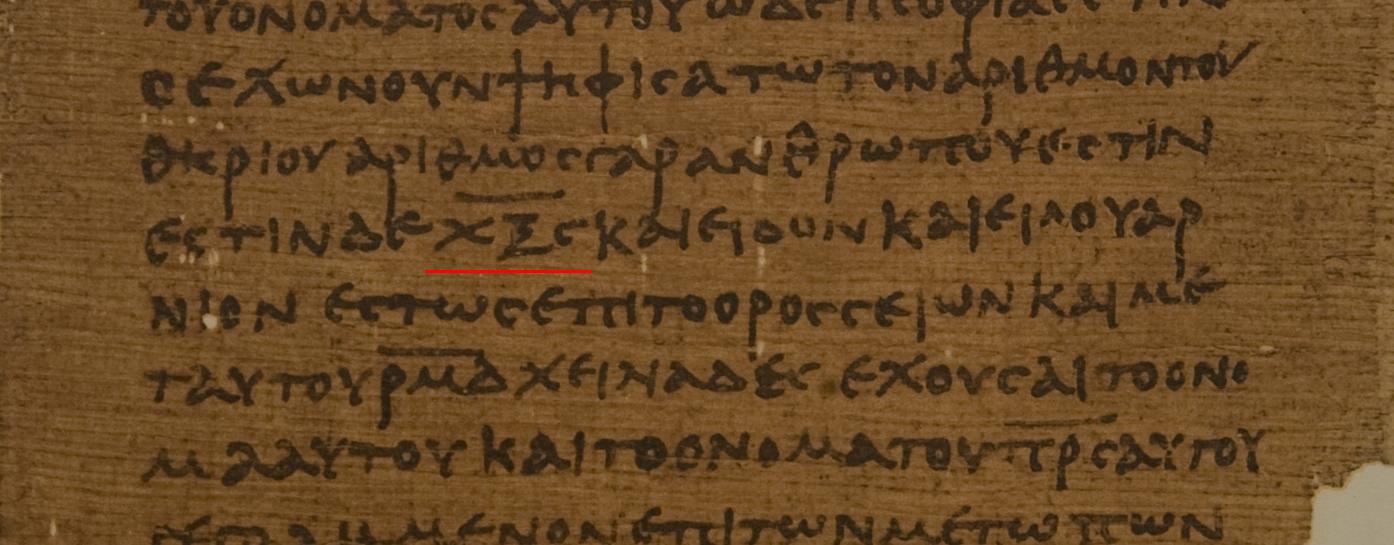 ΤΟΥΟΝΟΜΑΤΟϹΑΥΤΟΥΩΔΕΗϹΟΦΙΑΕϹΤΙΝ
ΟΕΧΩΝΟΥΝΨΗΦΙϹΑΤΩΤΟΝΑΡΙΘΜΟΝΤΟΥ
ΘΗΡΙΟΥΑΡΙΘΜΟϹΓΑΡΑΝΘΡΩΠΟΥΕϹΤΙΝ
ΕϹΤΙΝΔΕΧ̅Ξ̅Ϲ̅ΚΑΙΕΙΔΟΝΚΑΙΕΙΔΟΥΑΡ
ΝΙΟΝΕϹΤΩϹΕΠΙΤΟΟΡΟϹϹΕΙΩΝΚΑΙΜΕ
ΤΑΥΤΟΥΡ̅Μ̅Δ̅ΧΕΙΛΙΑΔΕϹΕΧΟΥϹΑΙΤΟΟΝΟ
ΜΑΑΥΤΟΥΚΑΙΤΟΟΝΟΜΑΤΟΥΠ̅Ρ̅Ϲ̅ΑΥΤΟΥ
ΓΕΓΡΑΜΜΕΝΟΝΕΠΙΤΩΝΜΕΤΩΠΩΝ